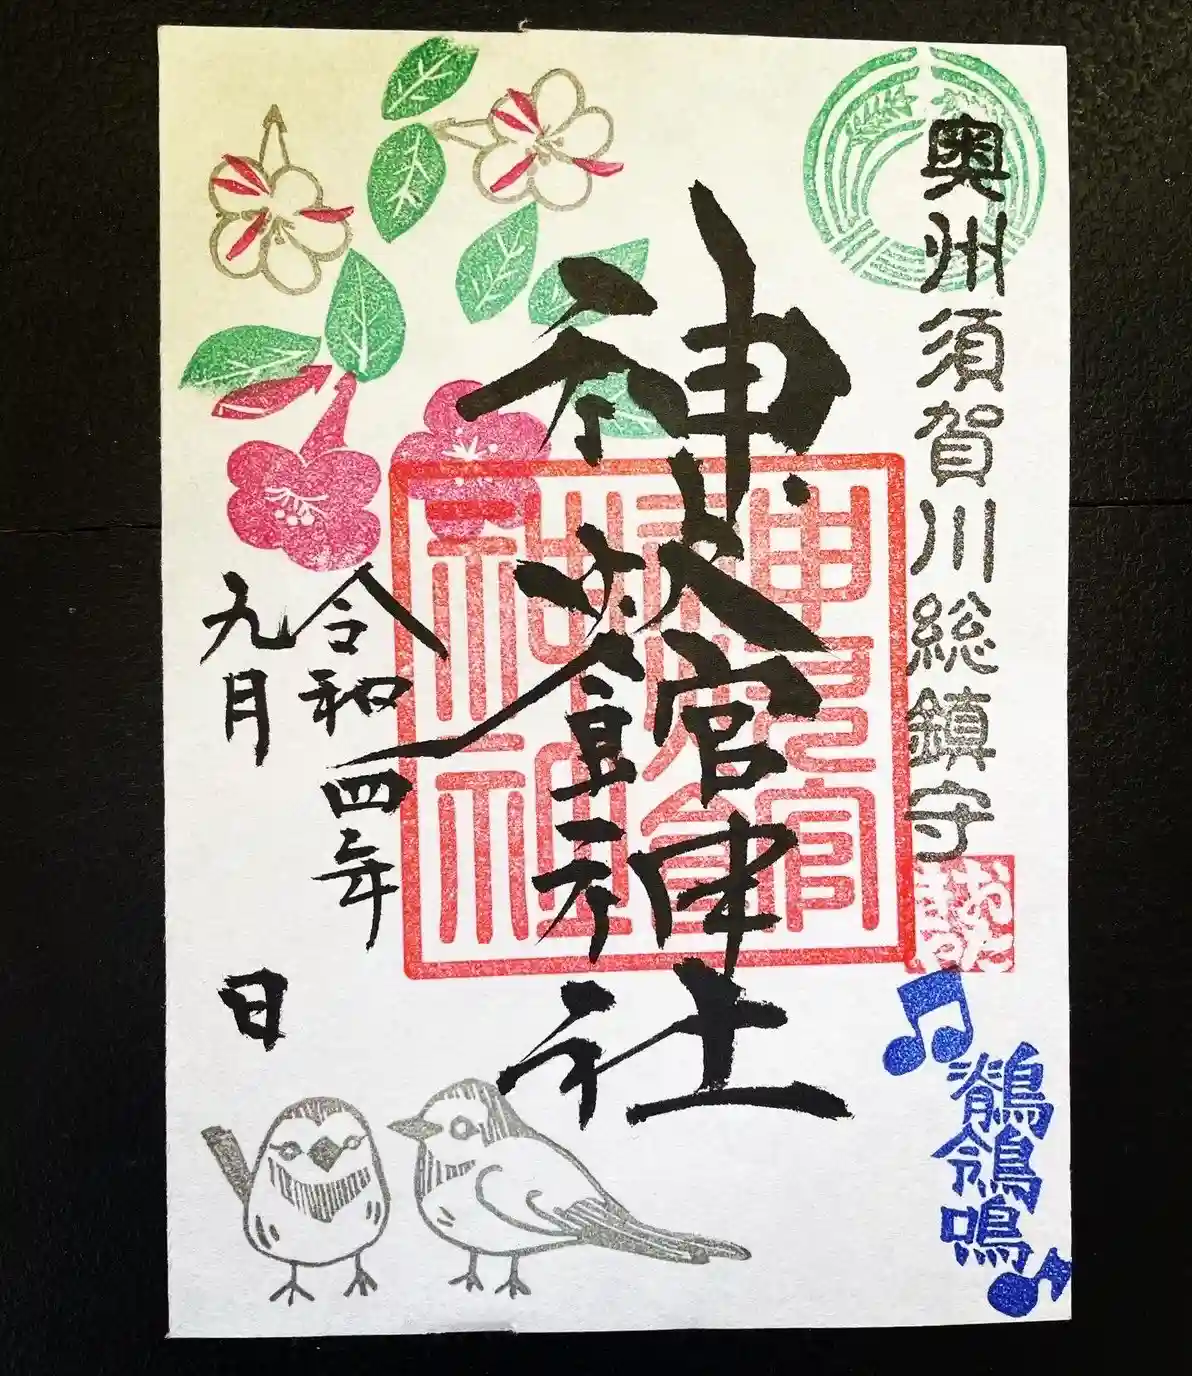 奥州須賀川総鎮守
鶺鴒鳴
神炊館神社
令和四年
九月 日